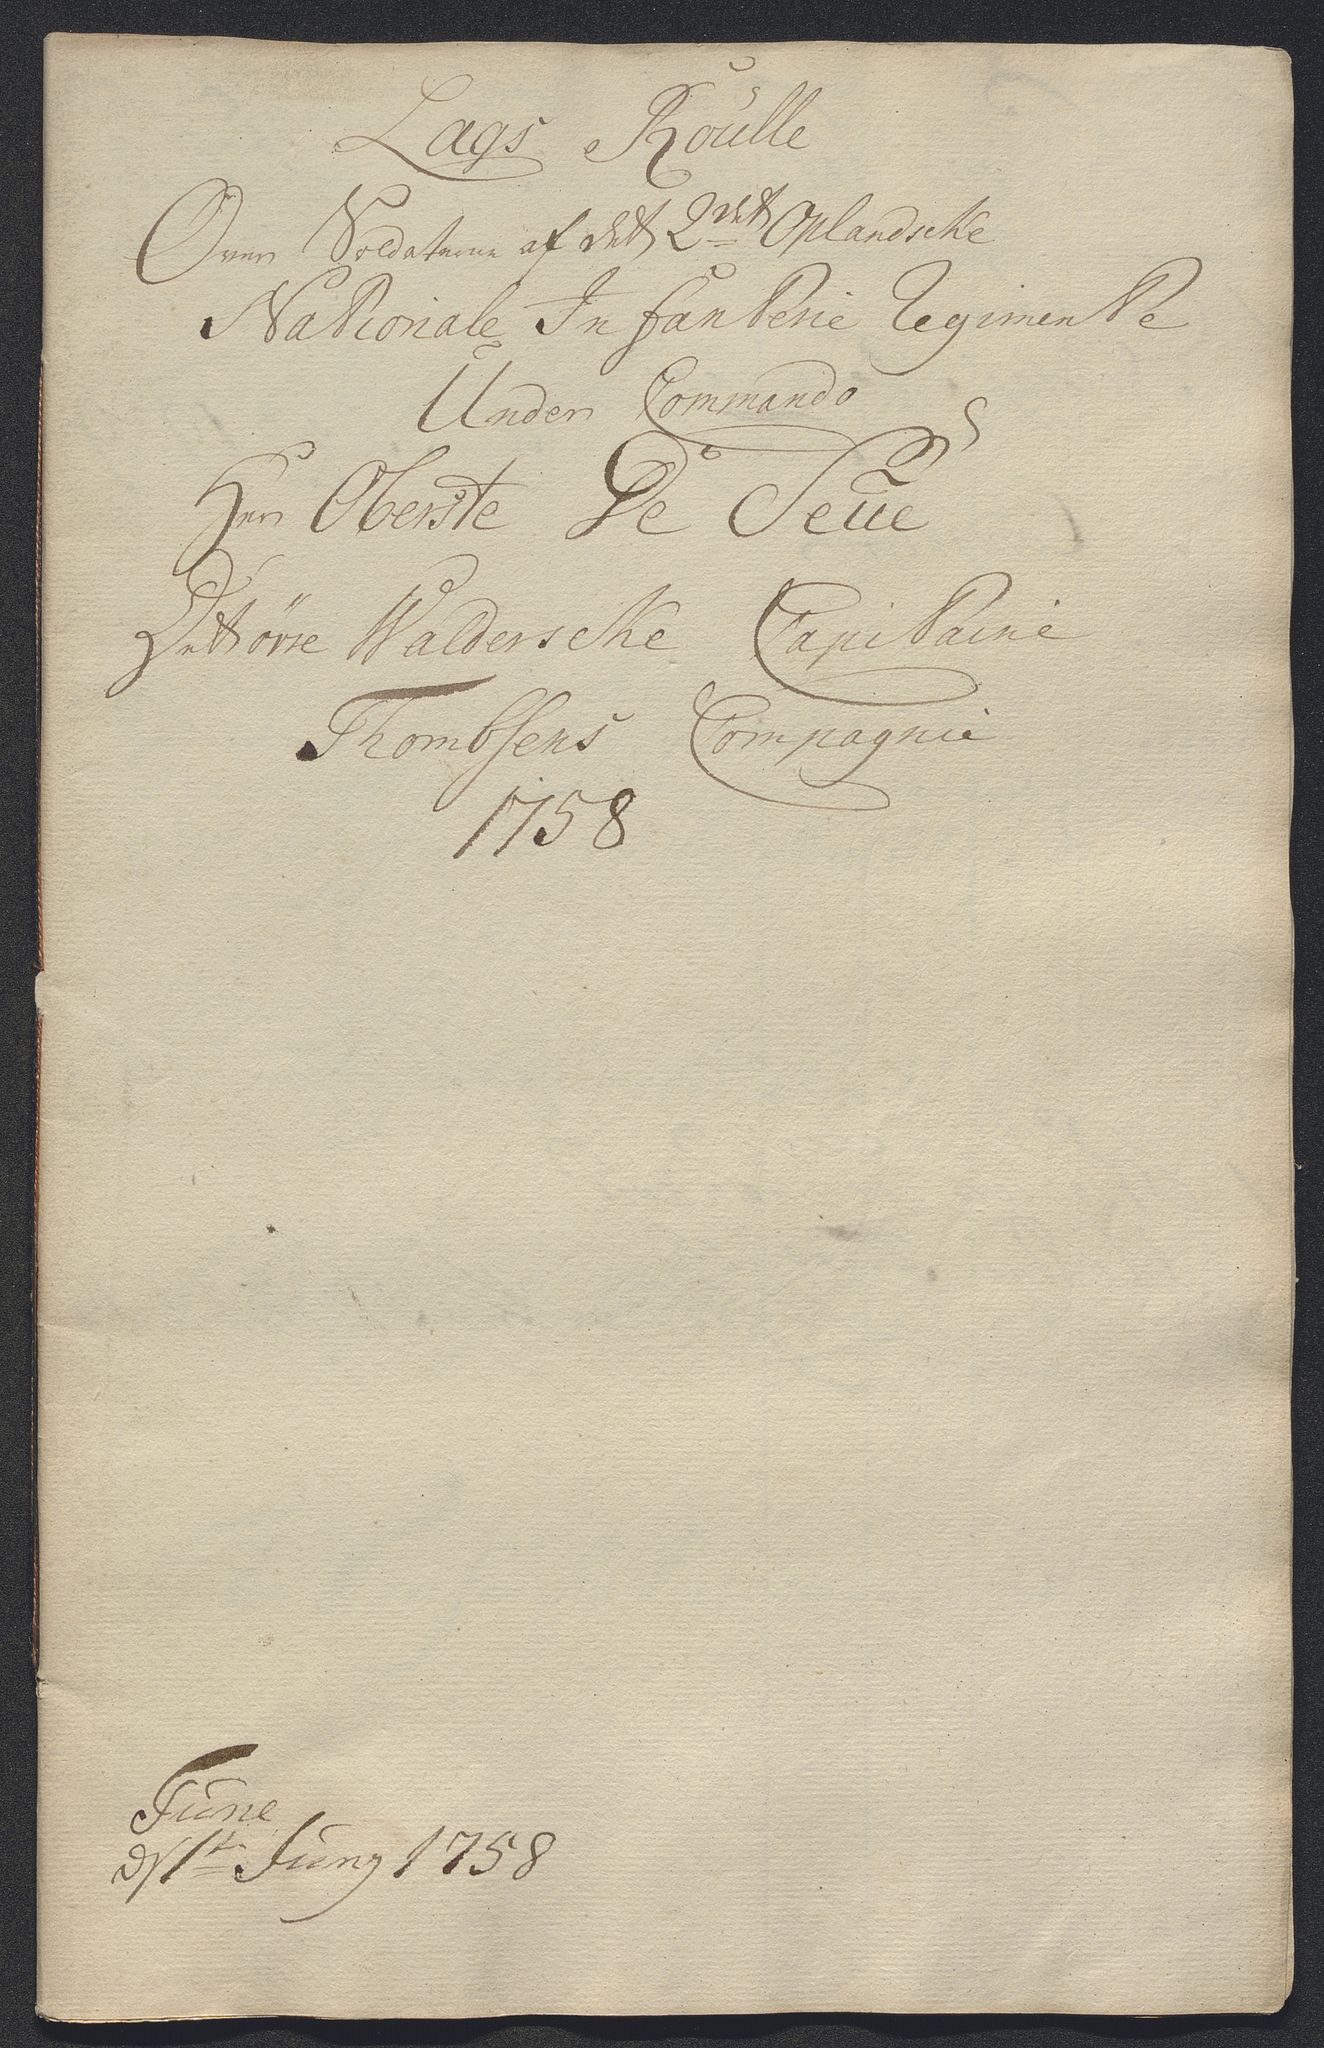 Lags Roulle
Over Soldaterne af det 2det Oplandscke
Nationale Infanterie Regimente
Under Commando
Herr Oberste De Seue
Dettørre Walderscke Capitaine
Thombsens Compagnie
1758
Fune
d 1te Juny 1758